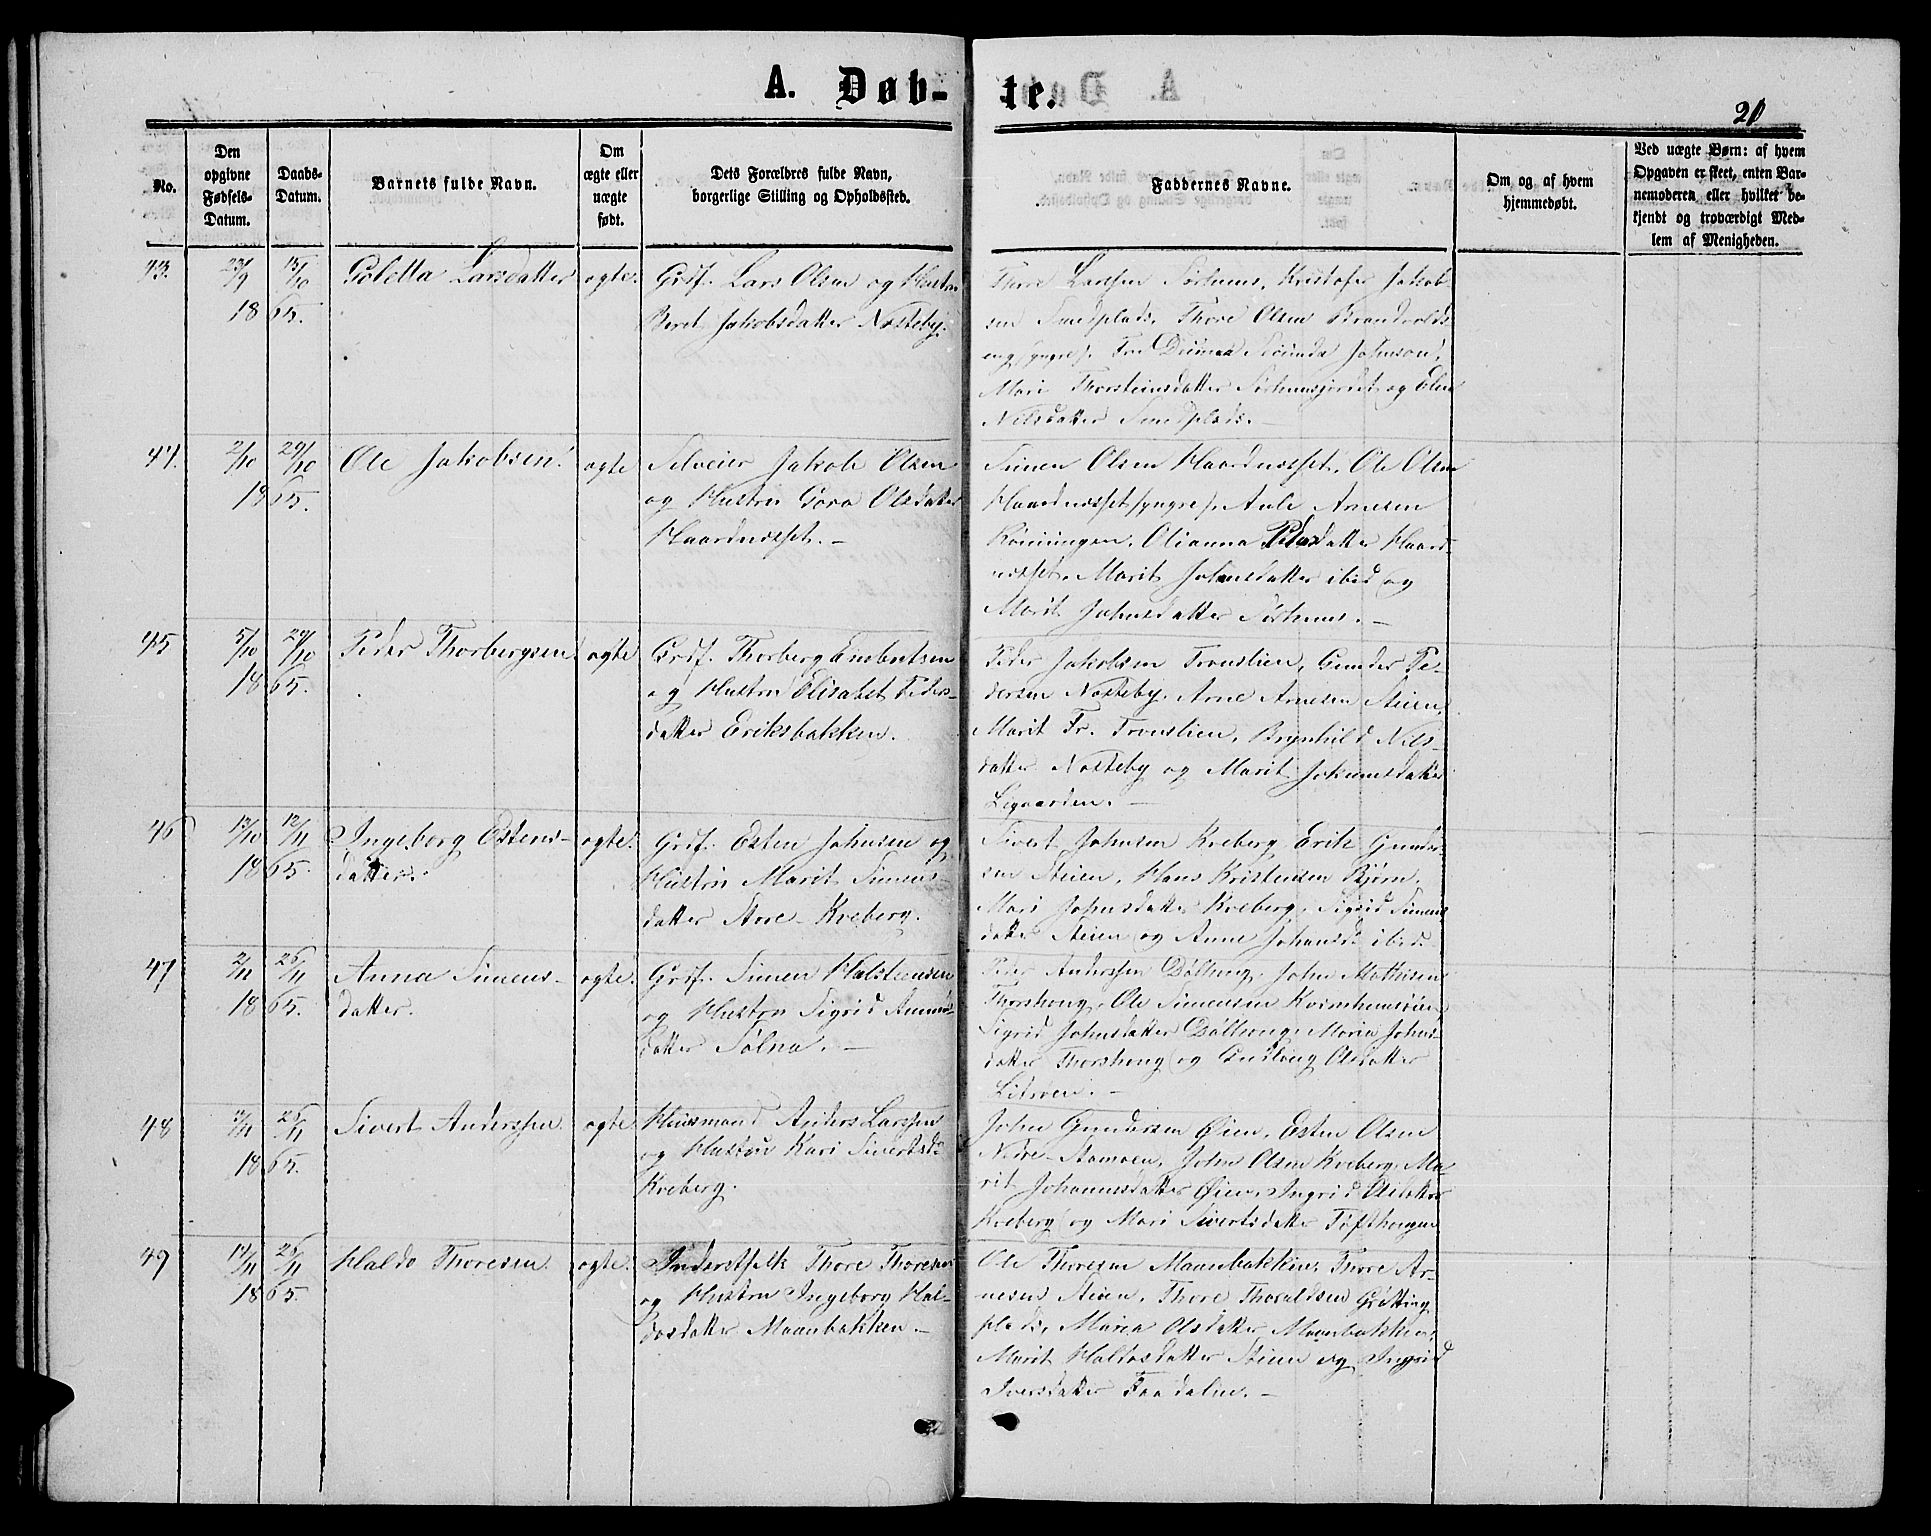 A. Døb-
te.
20
No.
Den
opgivne
Fødsels-
Datum.
Daabs-
Datum.
Barnets fulde Navn.
Om
ægte eller
uægte
født.
Dets Forældres fulde Navn,
borgerlige Stilling og Opholdssted.
Faddernes Navne.
Om og af hvem
hjemmedøbt.
Ved uægte Børn: af hvem
Opgaven er skeet, enten Bar-
nemoderen eller hvilket be-
kjendt og troværdigt Med-
lem af Menigheden.
43. 23/9 15/10 Goletta Larsdatter ægte. Grdf. Lars Olsen og Hustru
1865.
Beret Jakobsdatter Nosteby.
Thore Larssen Sørhuus, Kristofer Jakob-
sen Smedplads, Thore Olsen Brandvolds-
eng (yngre). Johnson,
Mari Thorsteinsdatter og Elen
Nilsdatter Smedplads.
44. 2/10 29/10 Ole Jakobsen. ægte Selveier Jakob Olsen
1865.
og Hustru Gora Olsdatter
Haardnæsset. –
Simen Olsen Haardnæsset, Ole Olsen
Haardnæsset (yngre), Arnesen
Rønningen, Olianna Pedersdatter Haard-
næsset, Marit Johnsdatter ibid og
Marit Johnsdatter Sørhuus. –
45 5/10 29/10 Peder Thorbergsen ægte Grdf. Thorberg Embretsen
1865.
og Hustru Elisabet Peders-
datter Eriksbakken.
Peder Jakobsen Tronslien, Gunder Pe-
dersen Nosteby, Arne Arnesen Steien,
Marit Fr. Tronslien, Brynhild Nils-
datter Nosteby og Marit Johannesdatter
Ligaarden. –
46 13/10 12/11 Ingeborg Estens- ægte. Grdf. Esten Johnsen og
1865. datter.
Hustru Marit Simens-
datter Store-Kveberg.
Sivert Johnsen Kveberg, Erik Gunder-
sen Steien, Hans Kristensen Bjørn,
Mari Johnsdatter Kveberg, Sigrid Simens-
datter Steien og Anne Johansd. ibid.
47 2/11 26/11 Anna Simens- ægte. Grdf. Simen Halstensen
1865. datter.
og Hustru Sigrid
datter Sølna. –
Peder Anderssen Dølhaug, John Mathisen
Thorshoug, Ole Simensen
Sigrid Johnsdatter Dølhoug, Maria Johns-
datter Thorshoug og Olsdatter
48 26/11 Sivert Anderssen ægte Huusmand Anders Larssen
1865.
og Hustru Kari Sivertsd.
Kveberg.
John Gundersen Øien, Esten Olsen
Nedre-Stamoen, John Olsen Kveberg, Ma-
rit Johannesdatter Øien, Ingrid Olsdatter
Kveberg og Mari Sivertsdatter
49 14/11 26/11 Haldo Thoresen. ægte. Inderstfolk Thore Thoresen
1865.
og Hustru Ingeborg Hal-
dosdatter Maanbakken –
Ole Thoresen Maanbakken, Thore Ar-
nesen Steien, Thore Thoraldsen Grøtting-
plads, Maria Olsdatter Maanbakken,
Marit Haldosdatter Steien og Ingrid
Iversdatter Faadalen. –